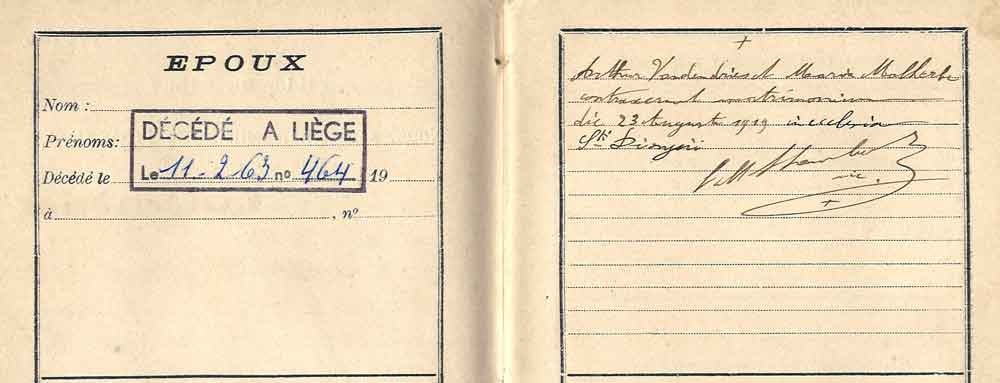 EPOUX
Nom :
Prénoms:
DÉCÉDÉ A LIÈGE
Décédé le
Le 11-2 63 no 464
19
à , nº
+
Arthur Vandendriest Maria Malherbe
contraxerunt matrimonium
die 23 Augusti 1919 in ecclesia
Sti Dionysii
vic.
+